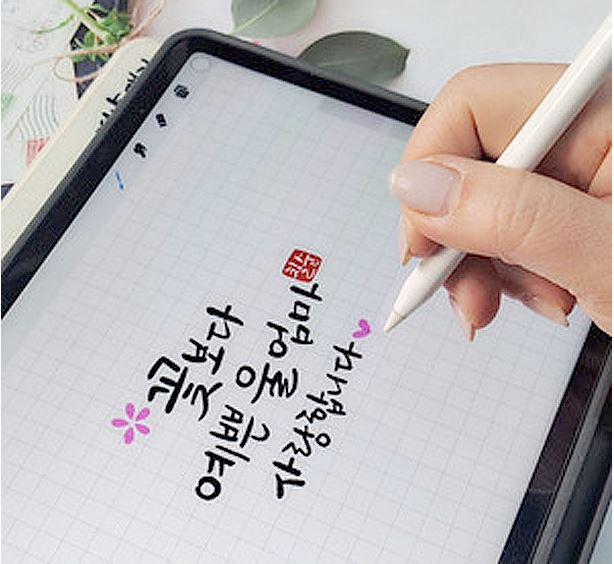 꽃보다
예쁜 울엄마
사랑합니다